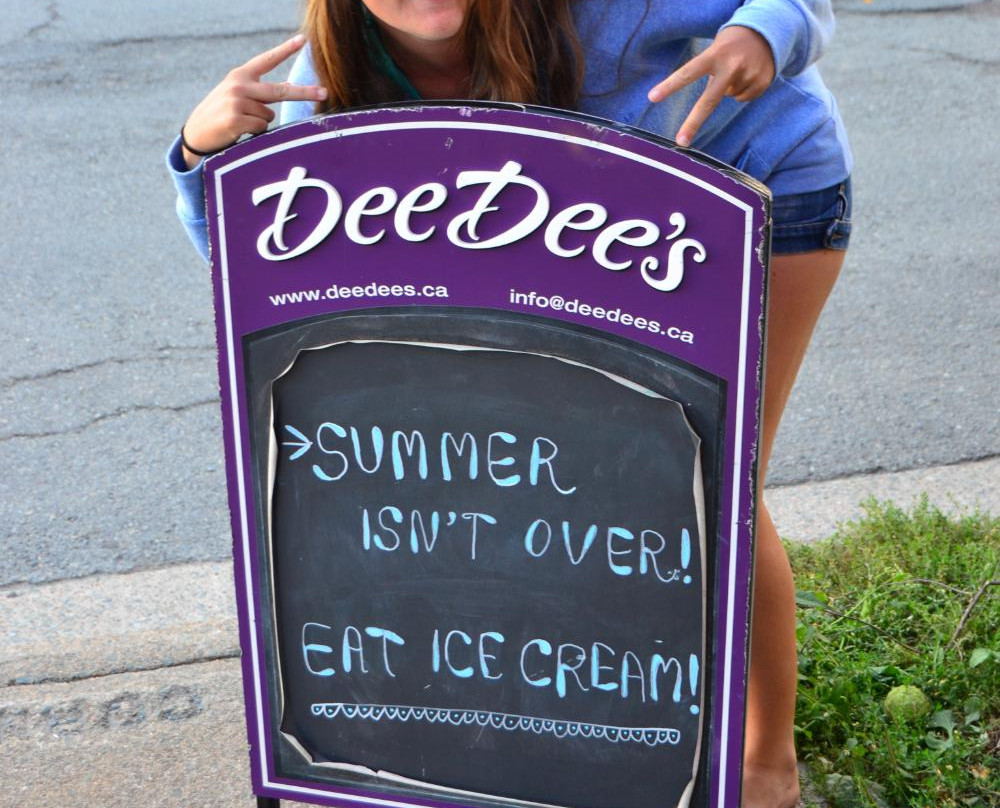 DeeDee's
www.deedees.ca info@deedees.ca
>SUMMER
ISN'T OVER!
EAT ICE CREAM!